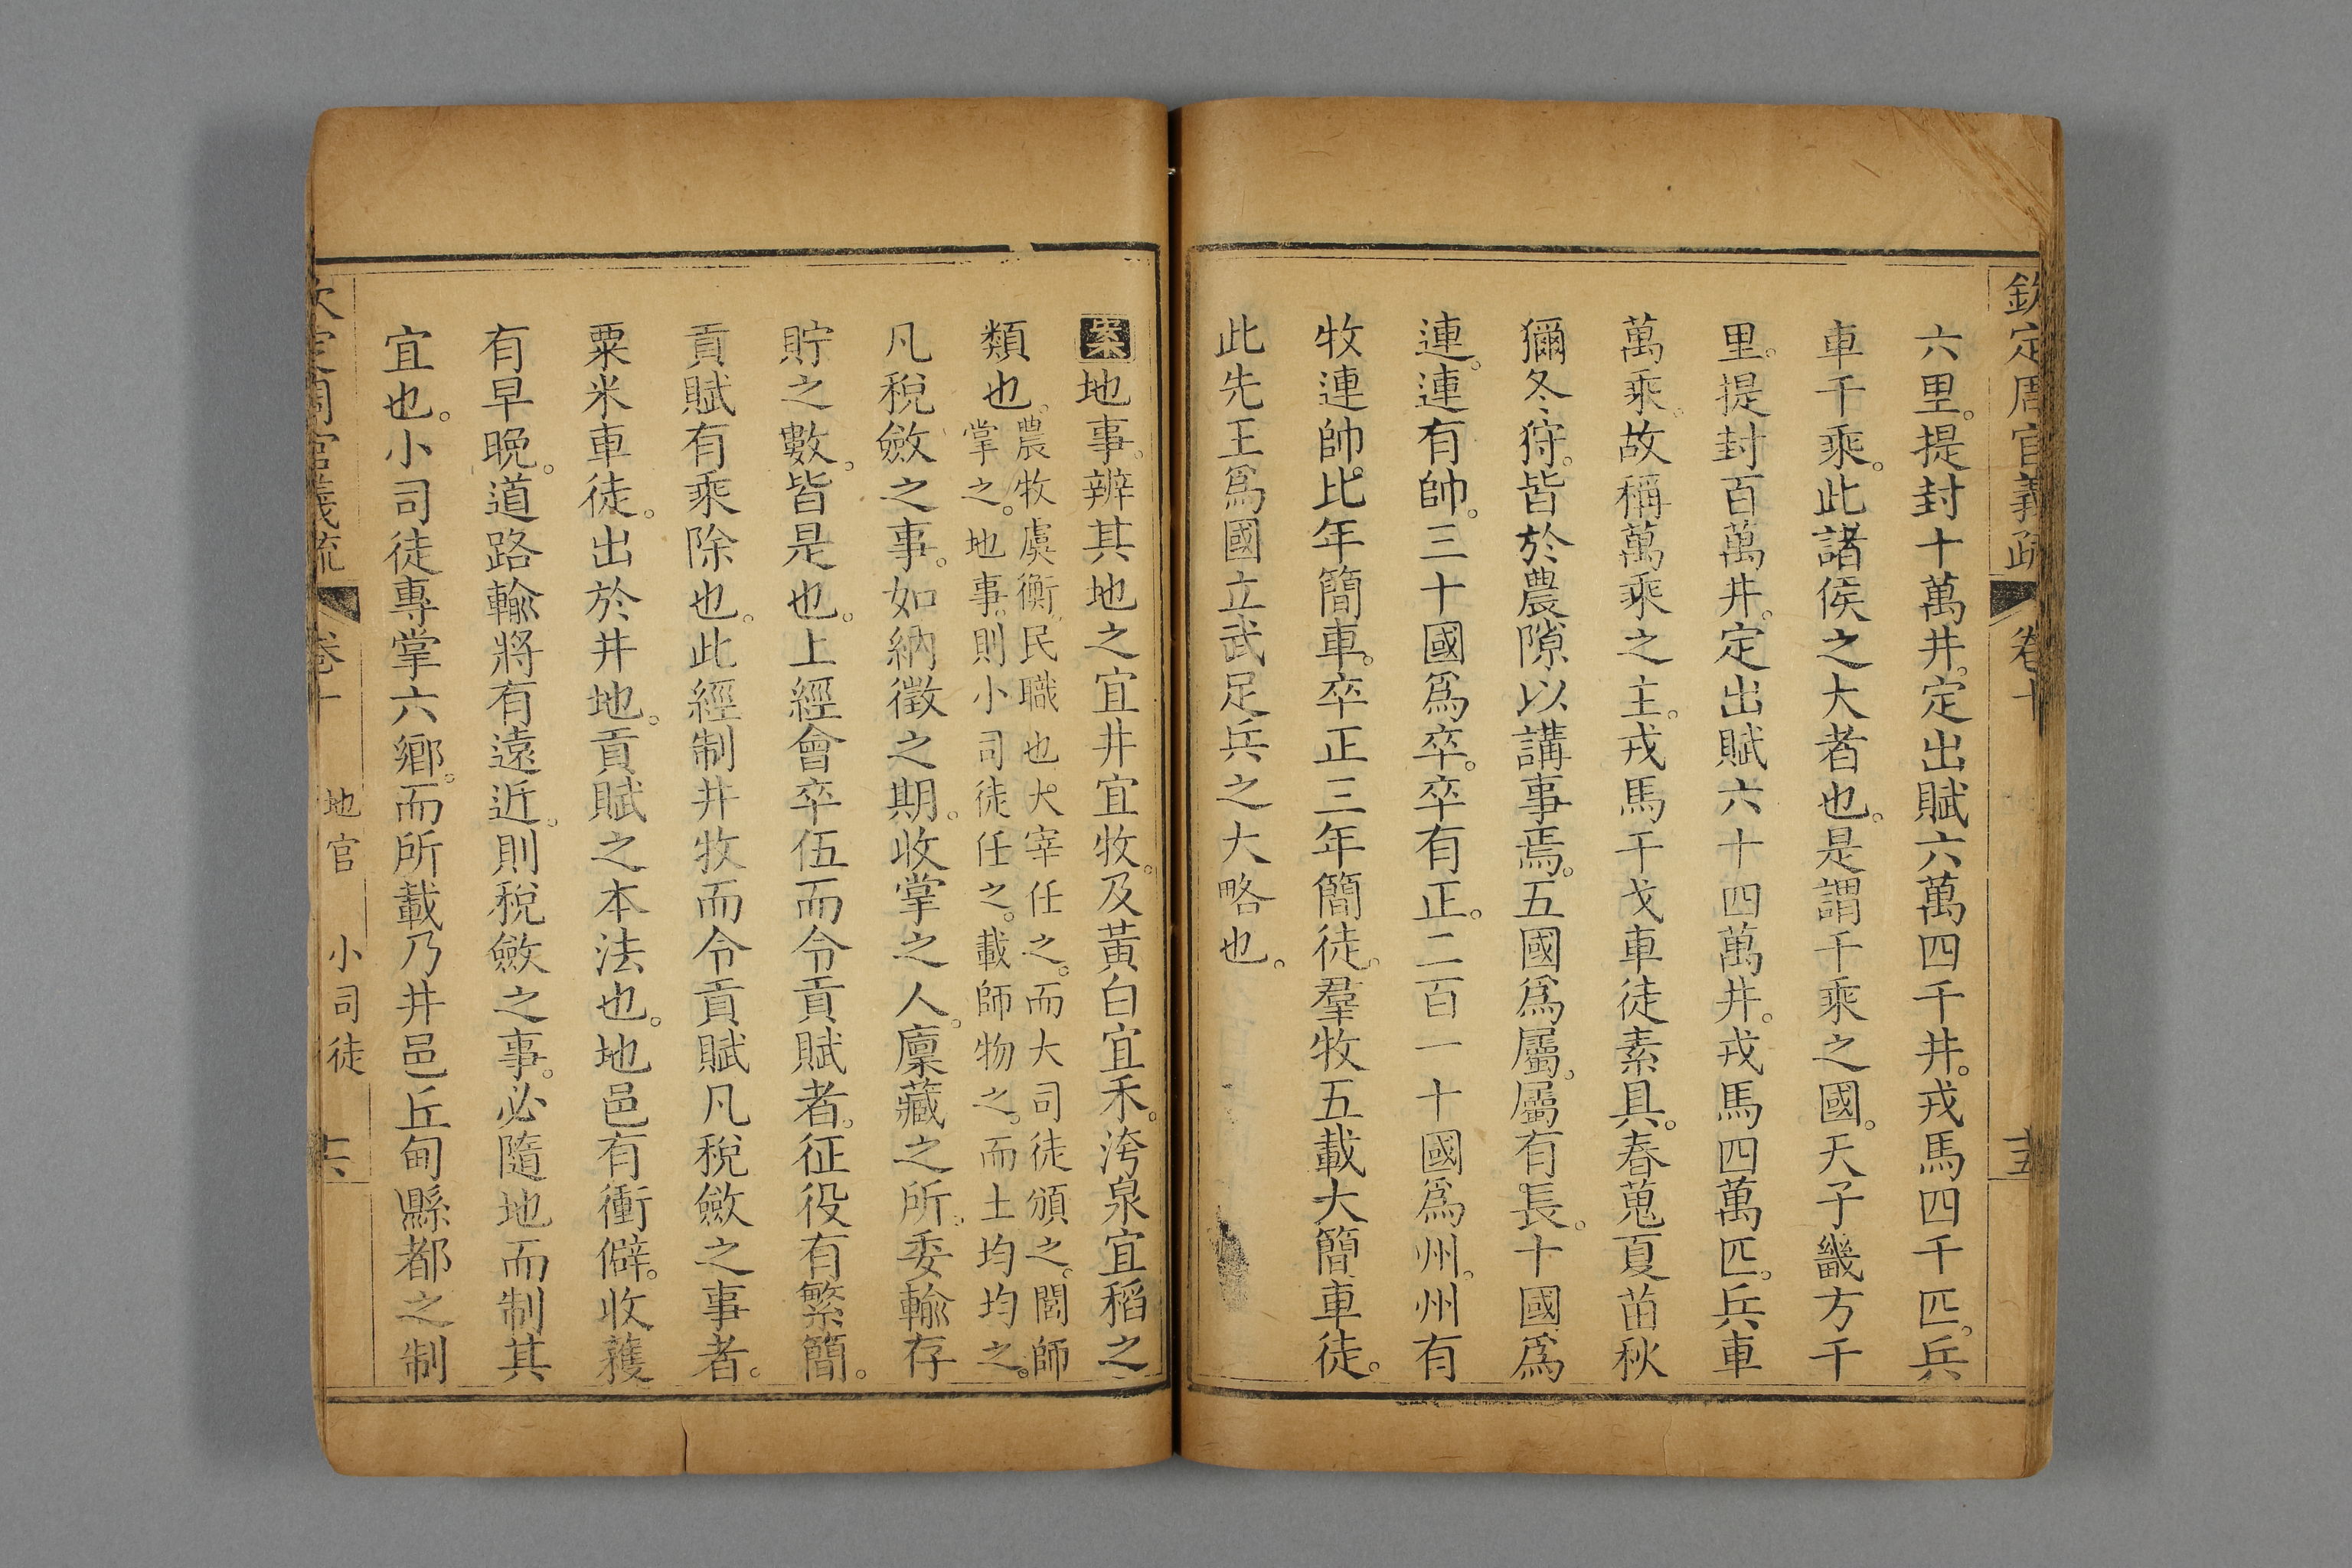 欽定周官義疏 卷十 十五
六里。提封十萬井。定出賦六萬四千井。戎馬四千匹。兵
車千乘。此諸侯之大者也。是謂千乘之國。天子畿方千
里。提封百萬井。定出賦六十四萬井。戎馬四萬匹。兵車
萬乘。故稱萬乘之主。戎馬干戈車徒素具。春蒐夏苗秋
獮冬狩。皆於農隙以講事焉。五國爲屬。屬有長。十國爲
連。連有帥。三十國爲卒。卒有正。二百一十國爲州。州有
牧連帥。比年簡車。卒正三年簡徒。羣牧五載大簡車徒。
此先王爲國立武足兵之大略也。
案地事。辨其地之宜井宜牧。及黃白宜禾。洿泉宜稻之
類也。農牧虞衡。民職也。大宰任之。而大司徒頒之。閭師
掌之。地事。則小司徒任之。載師物之。而土均均之。
凡稅斂之事。如納徵之期。收掌之人。廩藏之所。委輸存
貯之數。皆是也。上經會卒伍而令貢賦者。征役有繁簡。
貢賦有乘除也。此經制井牧而令貢賦凡稅斂之事者。
粟米車徒。出於井地。貢賦之本法也。地邑有衝僻。收穫
有早晚。道路輸將有遠近。則稅斂之事。必隨地而制其
宜也。小司徒專掌六鄉。而所載乃井邑丘甸縣都之制
欽定周官義疏 卷十 地官 小司徒 十六